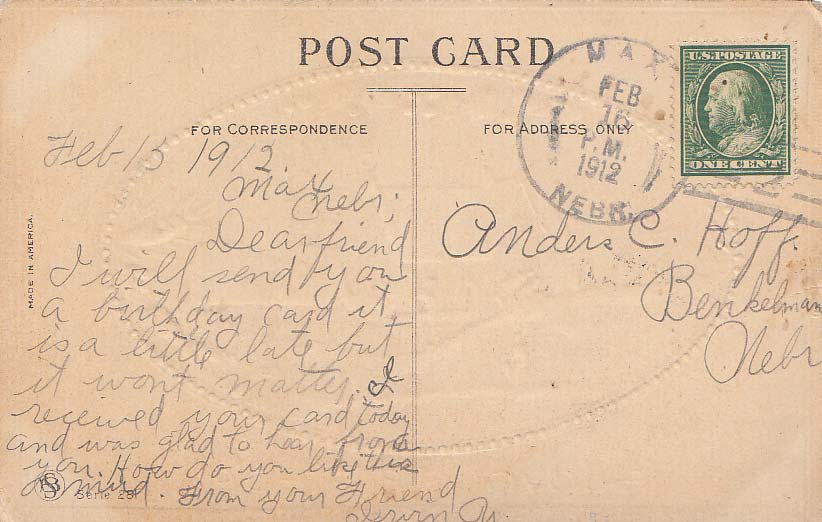 POST CARD
FOR CORRESPONDENCE
FOR ADDRESS ONLY
MADE IN AMERICA.
MAX
FEB
16
P.M.
1912
NEBR.
U.S. POSTAGE
ONE CENT
Feb 15 1912
Max
Nebr;
Dear friend
I will send you
a birthday card it
is a little late but
it wont matter. I
received your card today
and was glad to hear from
you. How do you like this
From your Friend
Anders C. Hoff.
Benkelman
Nebr
Serie 281